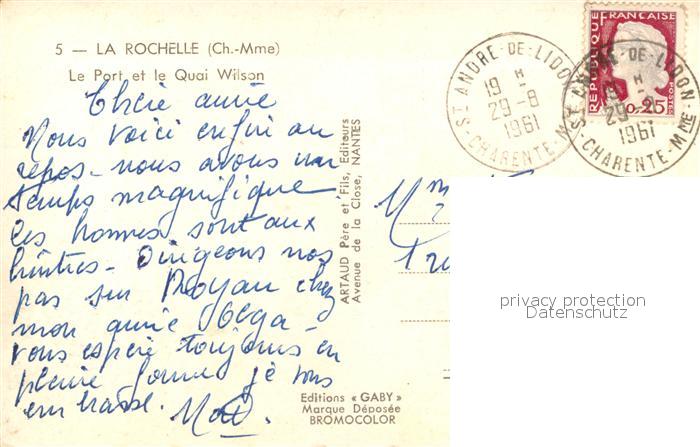 5 — LA ROCHELLE (Ch.-Mme)
Le Port et le Quai Wilson
Chère amie
Nous voici enfin au
repos - nous avons un
temps magnifique
les hommes sont aux
huîtres - Dirigeons nos
pas sur Royan chez
mon amie Olga -
vous espère toujours en
pleine forme je vous
embrasse.
ARTAUD Père et Fils, Editeurs
Avenue de la Close, NANTES
Editions « GABY »
Marque Déposée
BROMOCOLOR
ST ANDRE-DE-LIDON
19 H
29-8
1961
CHARENTE-MME
REPUBLIQUE FRANÇAISE
0,25
POSTES
ST ANDRE-DE-LIDON
19 H
29-8
1961
CHARENTE-MME
Mme
privacy protection
Datenschutz